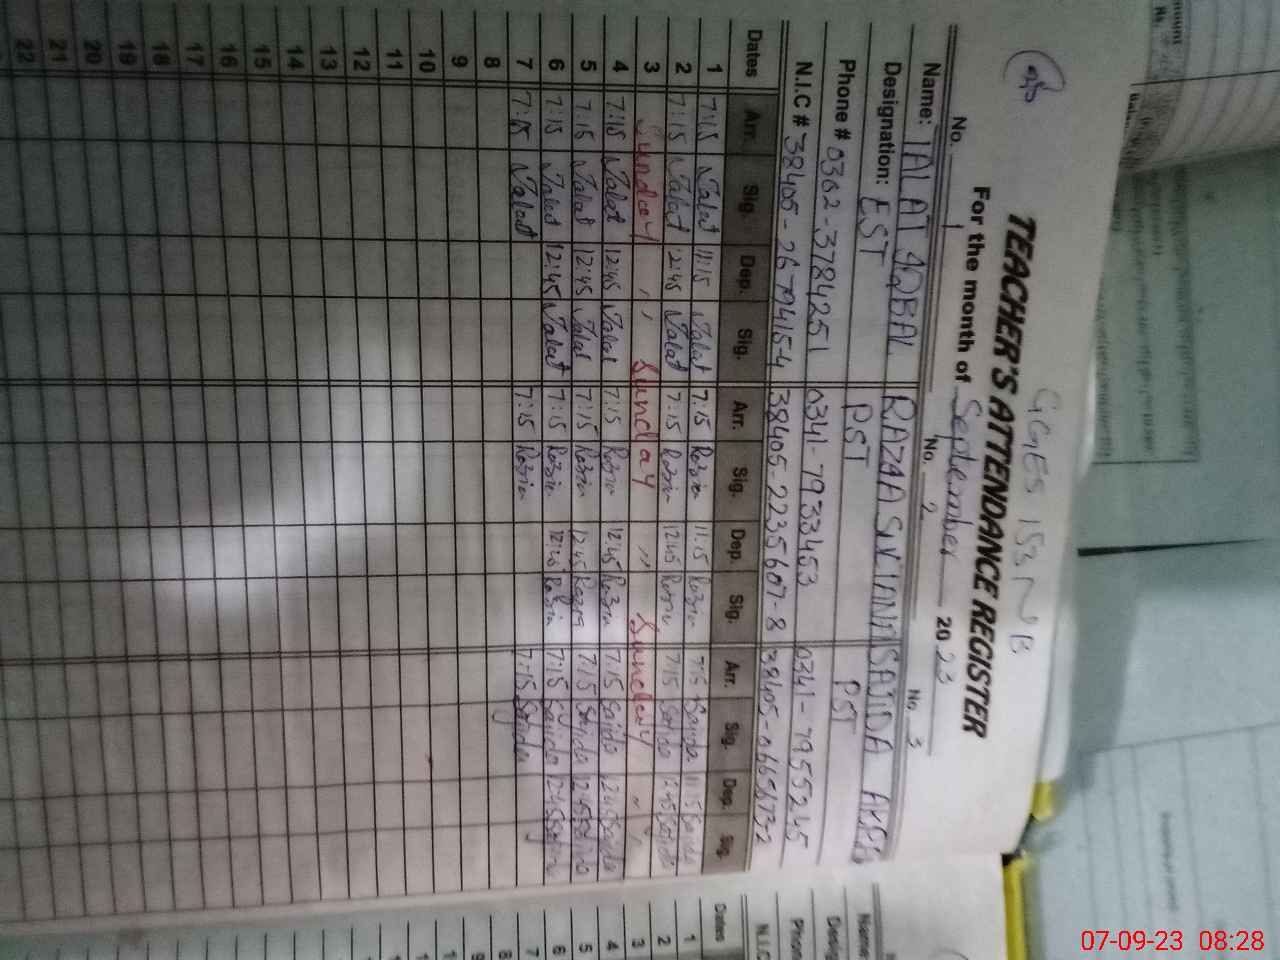 GGES 153 NB
TEACHER'S ATTENDANCE REGISTER
For the month of September 2023
No. 1 No. 2 No. 3
Name: TALAT IQBAL RAZAA SULTANA SAJIDA
Designation: EST PST PST
Phone # 0302-3784251 0341-7933453 0341-7955245
N.I.C # 38405-2679415-4 38405-2235607-8 38405-0665173-2
Dates Arr. Sig. Dep. Sig. Arr. Sig. Dep. Sig. Arr. Sig. Dep. Sig.
1 7:15 Talat 11:15 Talat 7:15 Razia 11:15 Razia 7:15 Sajida 11:15 Sajida
2 7:15 Talat 12:45 Talat 7:15 Razia 12:45 Razia 7:15 Sajida 12:45 Sajida
3 Sunday " Sunday " Sunday "
4 7:15 Talat 12:45 Talat 7:15 Razia 12:45 Razia 7:15 Sajida 12:45 Sajida
5 7:15 Talat 12:45 Talat 7:15 Razia 12:45 Razia 7:15 Sajida 12:45 Sajida
6 7:15 Talat 12:45 Talat 7:15 Razia 12:45 Razia 7:15 Sajida 12:45 Sajida
7 7:15 Talat 7:15 Razia 7:15 Sajida
8
9
10
11
12
13
14
15
16
17
18
19
20
21
22
Name
Phone
N.I.C
Dates
1
2
3
4
5
6
7
8
07-09-23 08:28